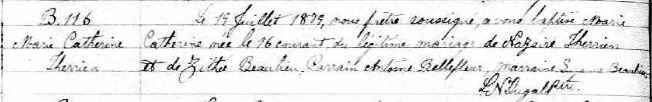 B. 116
Marie Catherine
Therrien
Le 19 Juillet 1879, nous prêtre soussigné, avons baptisé Marie
Catherine née le 16 courant du légitime mariage de Therrien
et de Beaulieu. Parrain Antoine Bellefleur, marraine Beaulieu
L. N. Dugal Ptre.